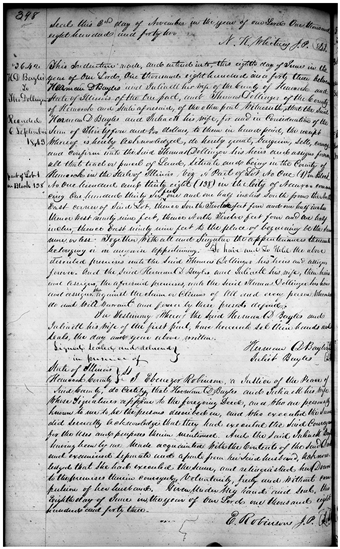 298
seal this 2nd day of November in the year of our Lord One thousand
eight hundred and forty two
N. K. Whitney J.P.
3648
H D Bayles
To
Thos Dollinger
Recorded
6 September
1843
part of Lot 1
in Block 138
This Indenture made, and entered into, this eighth day of June in the
year of our Lords, One thousand eight hundred and forty three between
Herman D Bayles and Juliett his wife of the County of Hancock and
State of Illinois of the One part, and Thomas Dollinger of the County
of Hancock and State aforesaid, of the other part Witnesseth, that the said
Herman D. Bayles and Juliett his wife, for and in Consideration of the
Sum of Dollars to them in hand paid, the receipt
Whereof is hereby Acknowledged, do hereby grant, bargain, Sell, convey
and confirm unto the said Thomas Dollinger his heirs and assigns forever
all that tract or parcel of Land, situate and being in the County of
Hancock in the State of Illinois. Viz. A Part of Lot No. One (1) in Block
No One hundred and thirty eight (138) in the City of Nauvoo
East corner of said Lot, thence South Twelve feet four and one half inches
thence west ninety nine feet, thence North Twelve feet four and one half
inches, thence East ninety nine feet to the place of beginning be the
same or less. Together with all and Singular the appurtenances thereunto
belonging or in anywise appertaining. To have and To Hold the above
described premises unto the Said Thomas Dollinger his heirs and assigns
forever. And the Said Herman D. Bayles and Juliett his wife, their heirs
and assigns, the aforesaid premises, unto the Said Thomas Dollinger his heirs
and assigns, against the claim or Claims of all and every person whomsoever
do and will warrant and forever by these presents defend.
In Testimony Whereof the Said Herman D. Bayles and
Juliett his wife of the first part, have hereunto set their hands and
seals, the day and year above written.
Signed, sealed, and delivered
in presence of
Herman D Bayles
Juliet Bayles
State of Illinois
Hancock County
I, Ebenezer Robinson, a Justice of the Peace of
Said County, do Certify, that Herman D Bayles and Juliett his wife
Whose Signatures appear to the foregoing Deed, and who are personally
known to me to be the persons described in, and who executed the same
did severally acknowledge that they had executed the Said Conveyance
for the Uses and purposes therein mentioned. And the Said Juliett Bayles
having been by me Made acquainted with the Contents of the Said Deed
and examined separate and apart from her Said husband, acknow-
ledged that She had executed the same, and relinquished her Dower
to the premises therein conveyed, Voluntarily, freely and Without com-
pulsion of her husband. Given under my hand and seal, the
Eighth day of June in the year of Our Lord one thousand eight
hundred and forty three.
E. Robinson J.P.